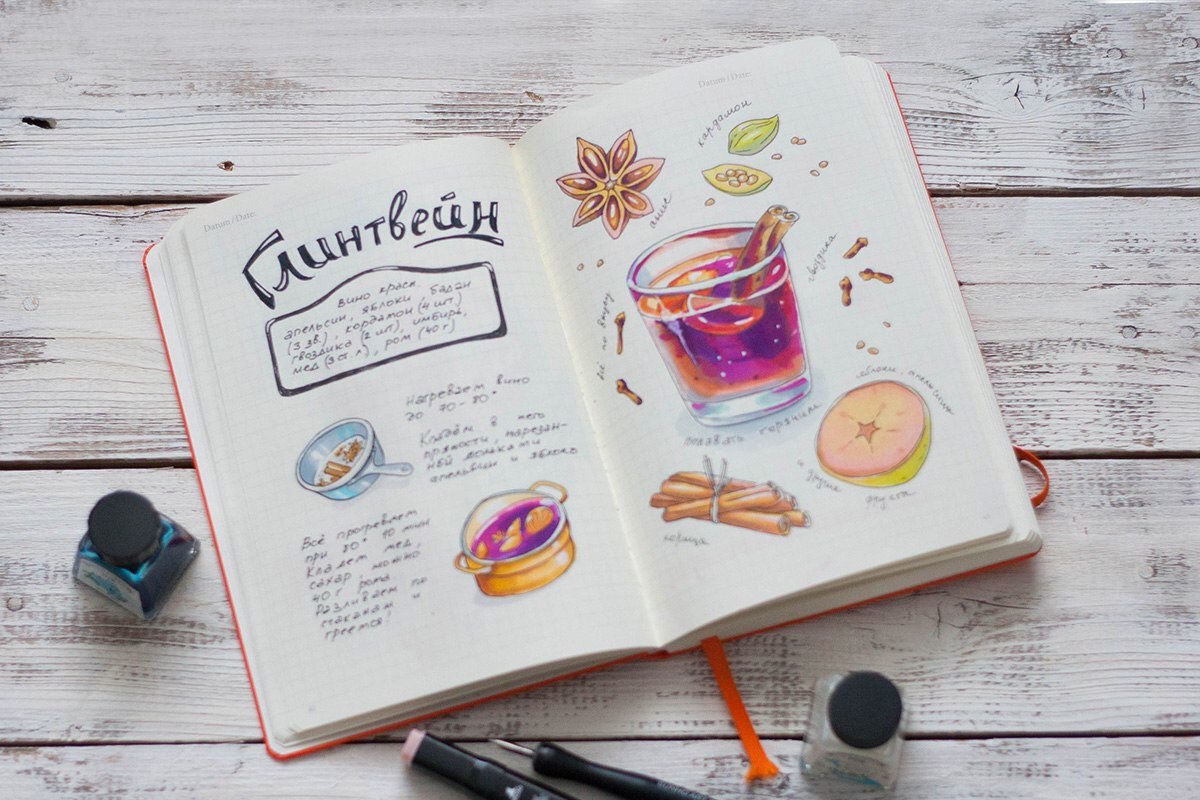 Datum / Date:
Глинтвейн
вино красн.
апельсин, яблоки, бадан
(3 зв.), кардамон (4 шт.)
гвоздика (2 шт), имбирь,
мед (3 ст. л), ром (40 г)
Нагреваем вино
до 70-80°
Кладём в него
пряности, нарезан-
ный дольками
апельсин и яблоко
Всё прогреваем
при 80° 10 мин
Кладем мед,
сахар, можно
40 г рома
Разливаем по
стаканам и
греемся!
Datum / Date:
кардамон
анис
гвоздика
всё по вкусу
яблоки, апельсины
подавать горячим
и другие
фрукты
корица